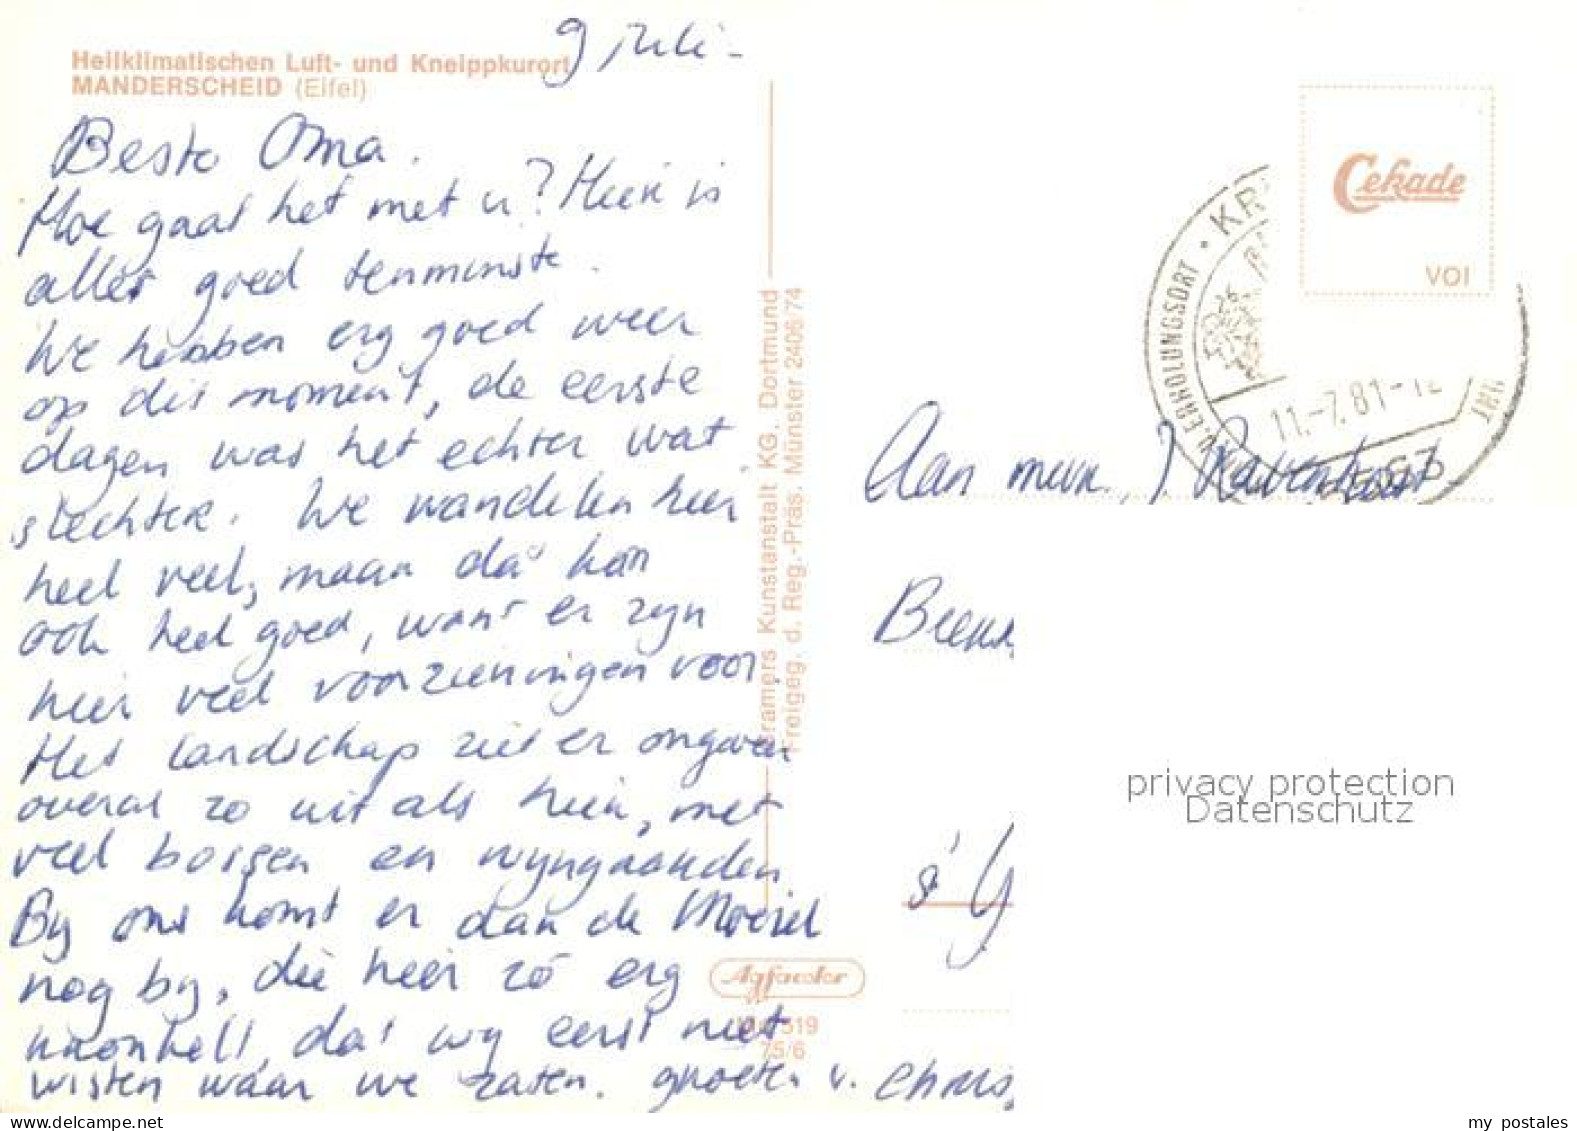 9 juli -
Heilklimatischen Luft- und Kneippkurort
MANDERSCHEID (Eifel)
Beste Oma.
Hoe gaat het met u? Hier is
alles goed tenminste.
We hebben erg goed weer
op dit moment, de eerste
dagen was het echter wat
slechter. We wandelen hier
heel veel, maar dat kan
ook heel goed, want er zijn
hier veel voorzieningen voor.
Het landschap ziet er ongeveer
overal zo uit als hier, met
veel bossen en wijngaarden
Bij ons komt er dan de Moesel
nog bij, die hier zo erg
kronkelt, dat wij eerst niet
wisten waar we zaten. groeten v. Chris,
Kramers Kunstanstalt KG. Dortmund
Freigeg. d. Reg.-Präs. Münster 2406/74
Agfacolor
519
75/6
Cekade
VOI
U. ERHOLUNGSORT · KR
11.-7.81-12
Aan mevr. J. Ravenhorst
s' G
privacy protection
Datenschutz
my postales